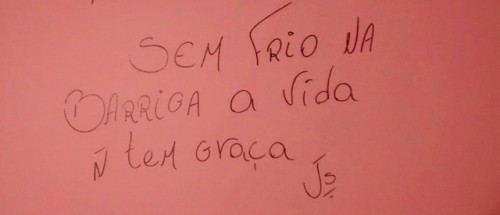 SEM FRIO NA
BARRIGA a vida
Ñ tem GRAÇA
Js